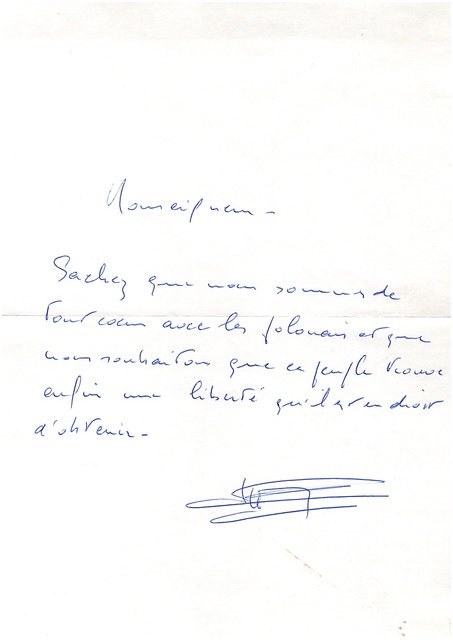 Monseigneur -
Sachez que nous sommes de
tout coeur avec les polonais et que
nous souhaitons que ce peuple trouve
enfin une liberté qu'il est en droit
d'obtenir -